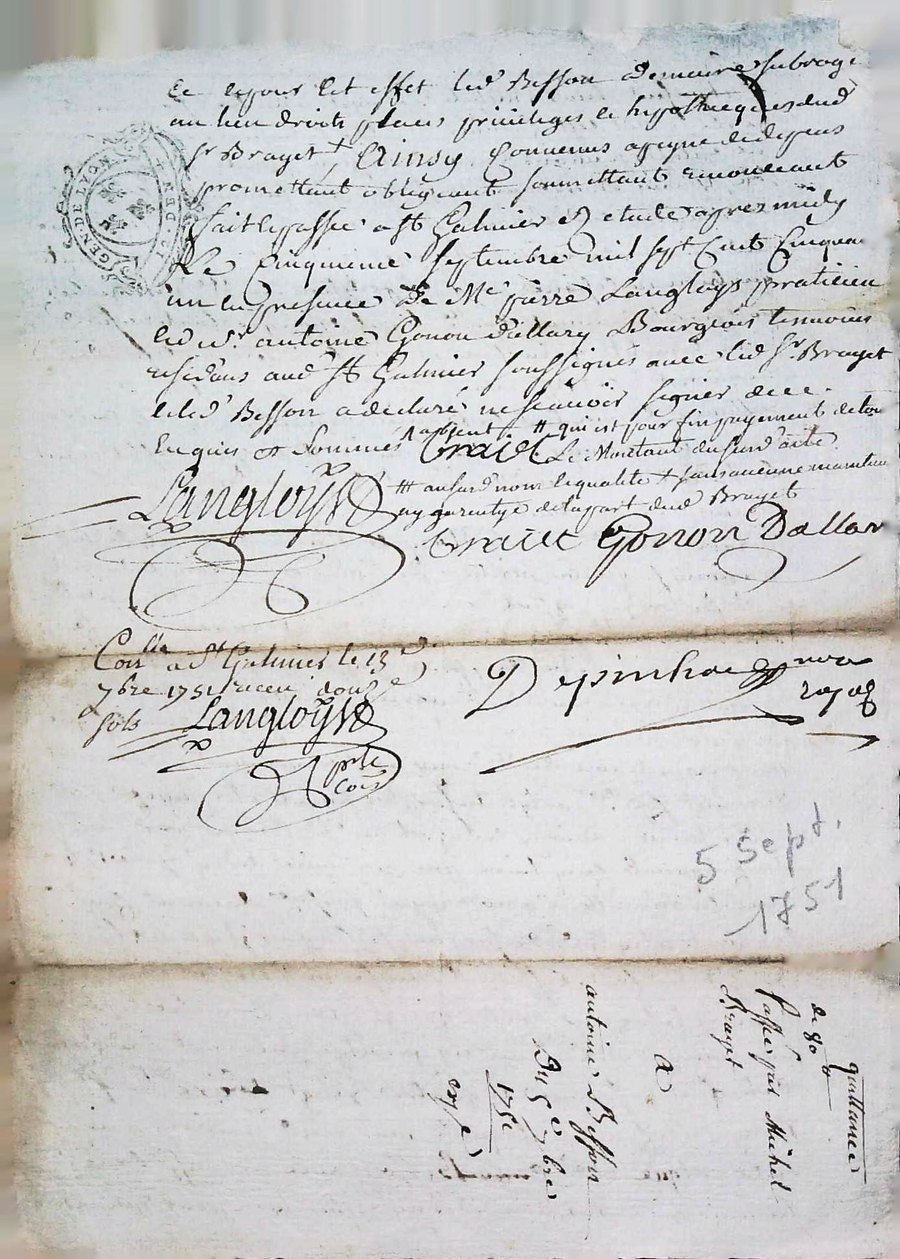 et effet led Besson demeure subrogé
au lieu droits places privileges et hypotheques dud
Sr Brayet Ainsy Convenus
promettant obligeant soumettant renonceant
fait et passé a St Galmier etude apres midy
Le Cinquieme septembre mil sept Cent Cinquan
un en presence de Me pierre Langloys praticien
et antoine Gonon Dallary Bourgeois temoins
aud St Galmier soussignés avec led Sr Brayet
et led Besson a declaré ne scavoir signer de ce
Enquis et sommé
absent qui est pour fin payement de tou
braiet Le Montant dususd acte
aususd nom et qualité sans aucune
ny garentye de la part dud Brayet
Langloys
braiet Gonon Dallar
GEN·DE LYON
Conlle a St Galmier le 13e
7bre 1751 receu douze
sols Langloys
nore
royal
5 sept.
1751
quittance
de 80
Passée par Michel
Brayet
A
antoine Besson
Du 5e 7bre
1751